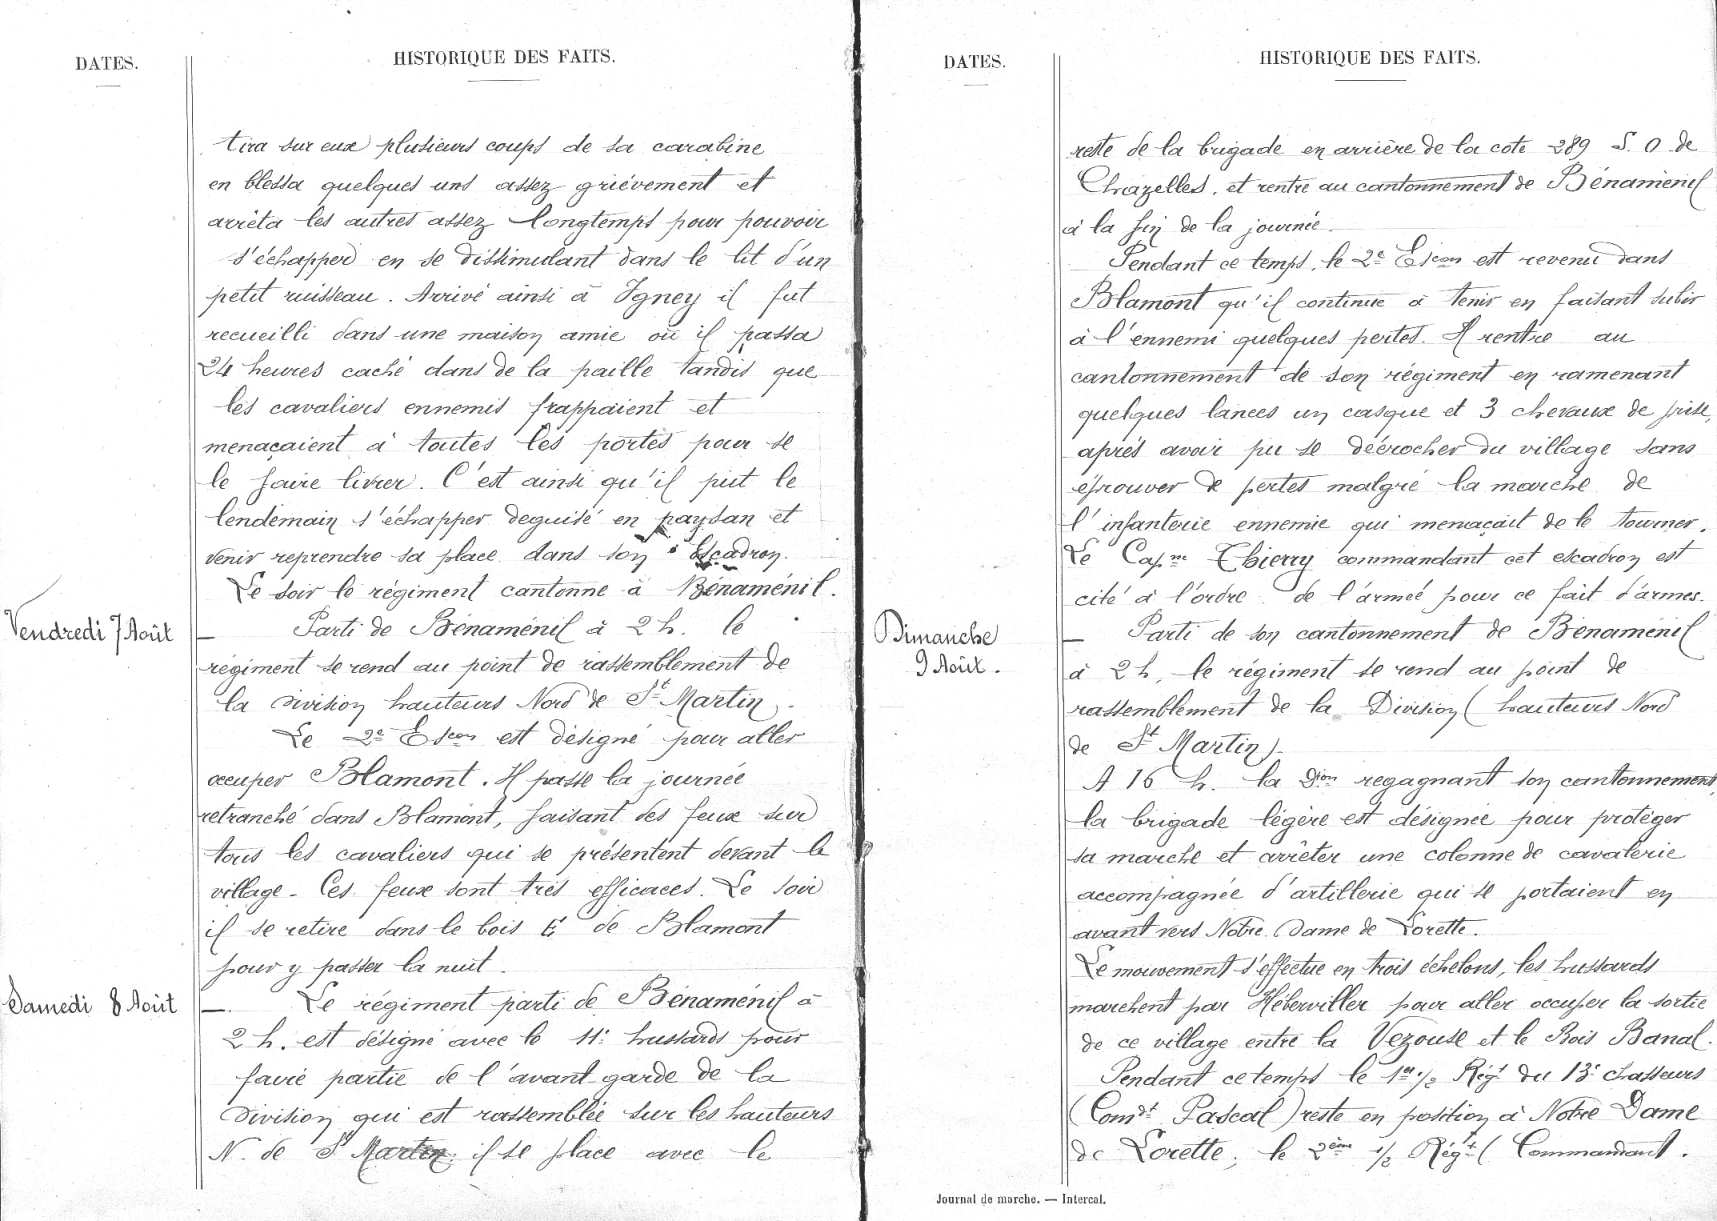 DATES.
HISTORIQUE DES FAITS.
tira sur eux plusieurs coups de sa carabine
en blessa quelques uns assez grièvement et
arrêta les autres assez longtemps pour pouvoir
s'échapper en se dissimulant dans le lit d'un
petit ruisseau. Arrivé ainsi à Igney il fut
recueilli dans une maison amie où il passa
24 heures caché dans de la paille tandis que
les cavaliers ennemis frappaient et
menaçaient à toutes les portes pour se
le faire livrer. C'est ainsi qu'il put le
lendemain s'échapper deguisé en paysan et
venir reprendre sa place dans son Escadron.
Le soir le régiment cantonne à Bénaménil.
Vendredi 7 Août — Parti de Bénaménil à 2 h. le
régiment se rend au point de rassemblement de
la division hauteurs Nord de St Martin.
Le 2e Escon est désigné pour aller
occuper Blamont. Il passe la journée
retranché dans Blamont, faisant des feux sur
tous les cavaliers qui se présentent devant le
village. Ces feux sont très efficaces. Le soir
il se retire dans le bois E de Blamont
pour y passer la nuit.
Samedi 8 Août — Le régiment parti de Bénaménil à
2 h. est désigné avec le 11e hussards pour
faire partie de l'avant garde de la
division qui est rassemblée sur les hauteurs
N. de St Martin il se place avec le
DATES.
HISTORIQUE DES FAITS.
reste de la brigade en arrière de la cote 289 S. O. de
Chazelles, et rentre au cantonnement de Bénaménil
à la fin de la journée.
Pendant ce temps, le 2e Escon est revenu dans
Blamont qu'il continue à tenir en faisant subir
à l'ennemi quelques pertes. Il rentre au
cantonnement de son régiment en ramenant
quelques lances un casque et 3 chevaux de prise,
après avoir pu se décrocher du village sans
éprouver de pertes malgré la marche de
l'infanterie ennemie qui menaçait de le tourner.
Le Capne Thierry commandant cet escadron est
cité à l'ordre de l'armée pour ce fait d'armes.
Dimanche 9 Août. — Parti de son cantonnement de Bénaménil
à 2 h, le régiment se rend au point de
rassemblement de la Division (hauteurs Nord
de St Martin).
A 16 h. la Dion regagnant son cantonnement,
la brigade légère est désignée pour protéger
sa marche et arrêter une colonne de cavalerie
accompagnée d'artillerie qui se portaient en
avant vers Notre Dame de Lorette.
Le mouvement s'effectue en trois échelons, les hussards
marchent par Héberviller pour aller occuper la sortie
de ce village entre la Vezouse et le Bois Banal.
Pendant ce temps le 1er 1/2 Régt du 13e chasseurs
(Comdt Pascal) reste en position à Notre Dame
de Lorette; le 2ème 1/2 Régt (Commandant.
Journal de marche. — Intercal.